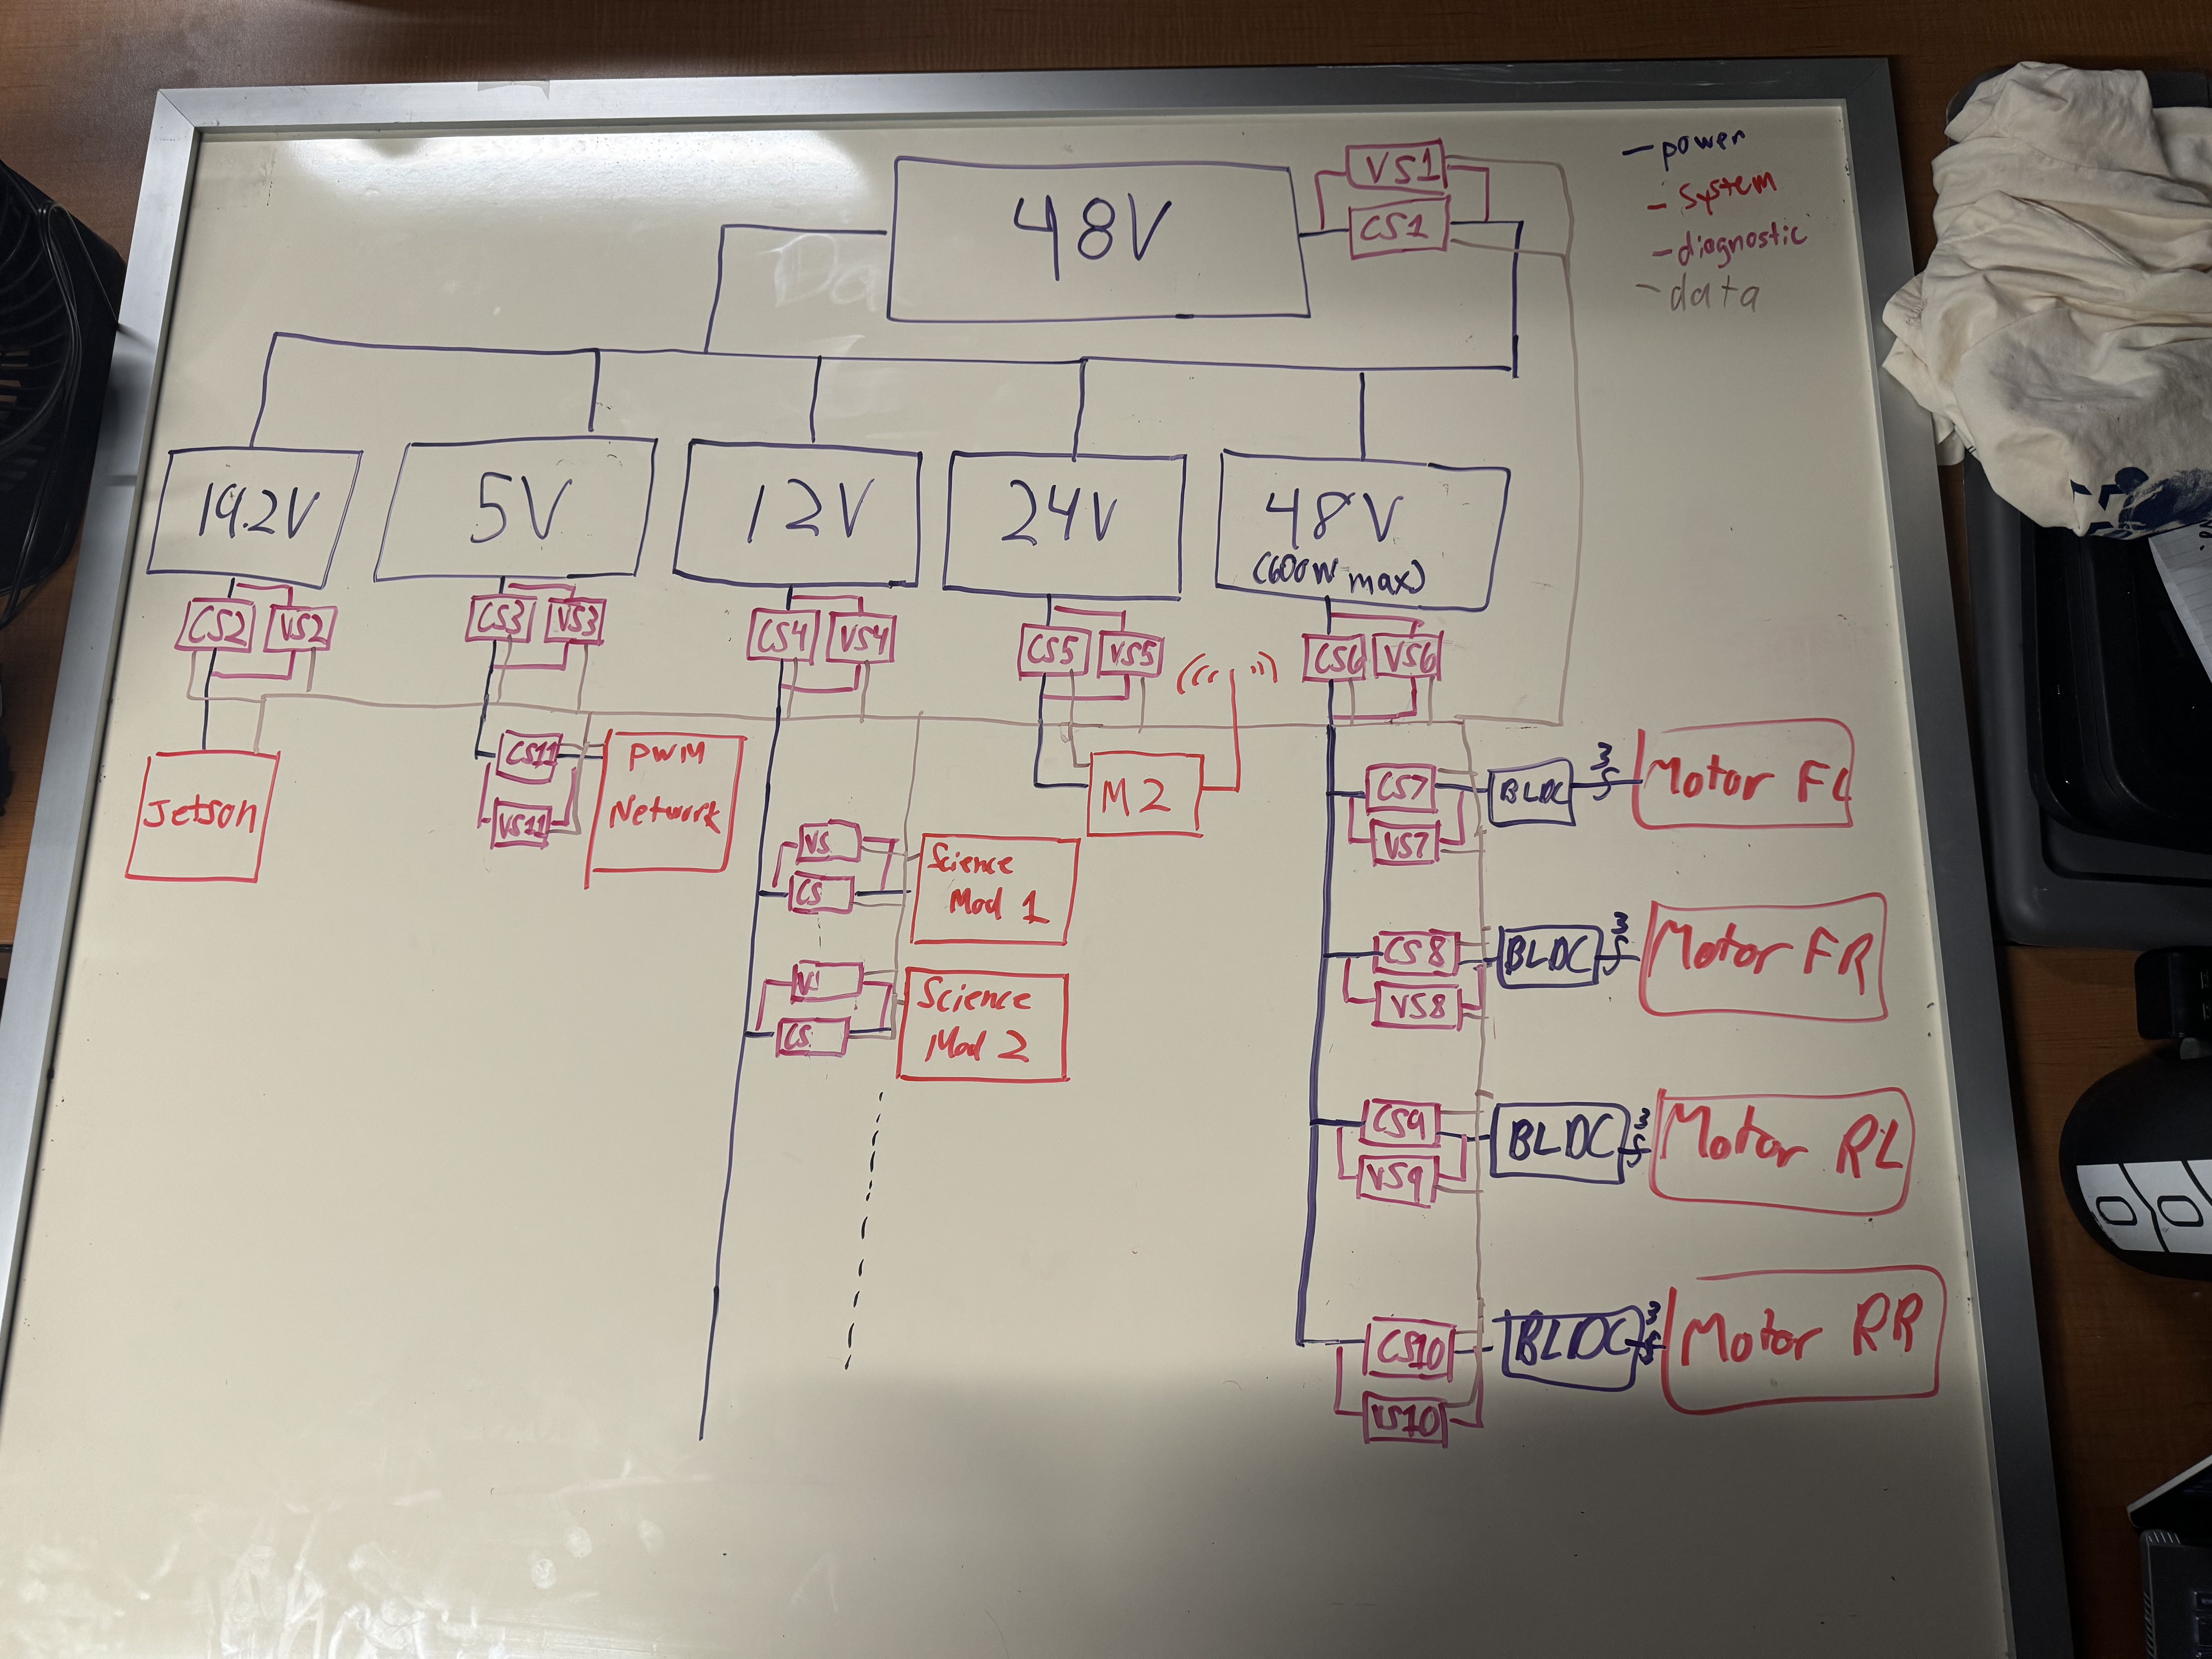 48V
VS1
CS1
power
System
diagnostic
data
Da
19.2V
5V
12V
24V
48V
(600W max)
CS2
VS2
CS3
VS3
CS4
VS4
CS5
VS5
CS6
VS6
Jetson
CS11
VS11
PWM
Network
M2
CS7
VS7
BLDC
3
Motor FL
VS
CS
Science
Mod 1
CS8
VS8
BLDC
3
Motor FR
VS
CS
Science
Mod 2
CS9
VS9
BLDC
3
Motor RL
CS10
VS10
BLDC
3
Motor RR